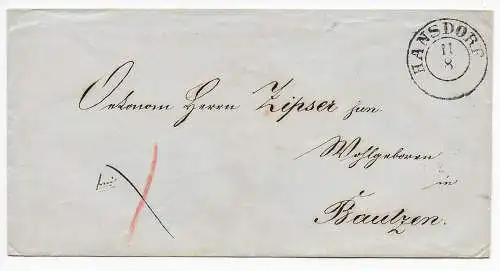 HANSDORF
11
8
Oekonom Herrn Zipser jun.
Wohlgeborrn
in
Bautzen.